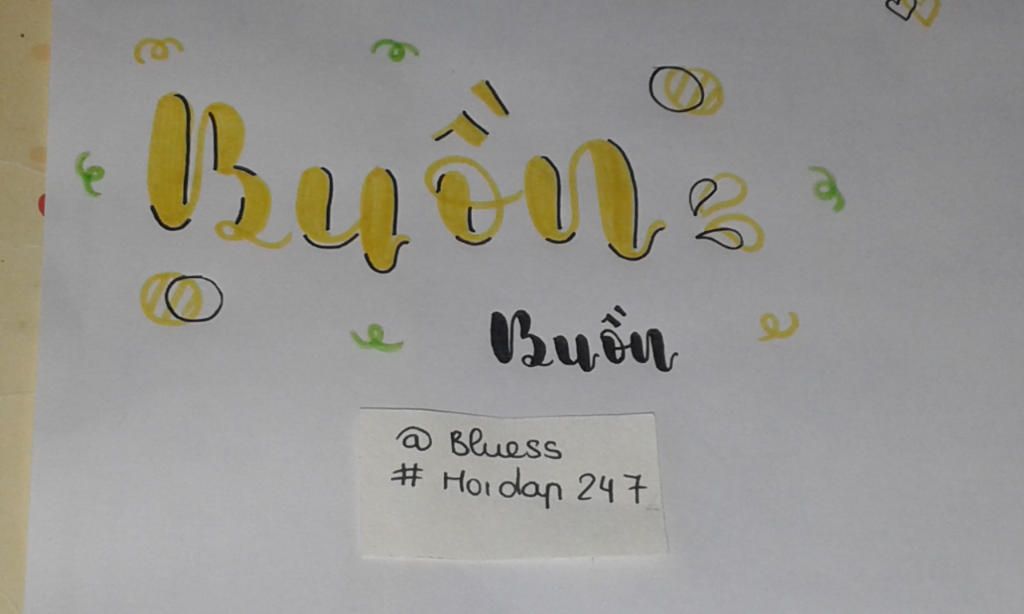 Buồn
Buồn
@ Bluess
# Hoidap 247